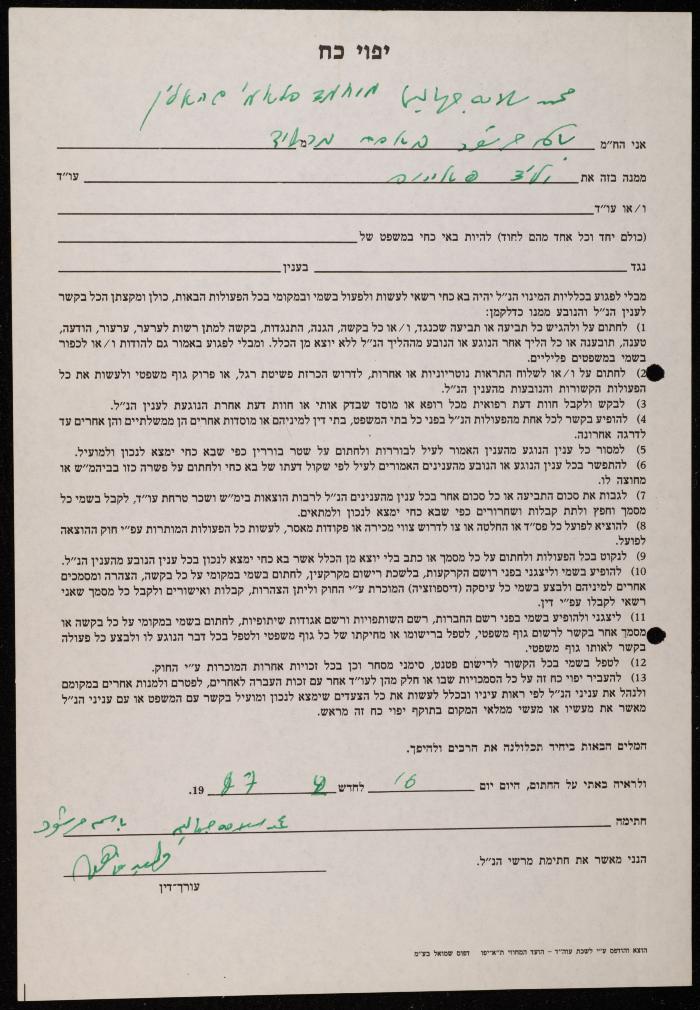 יפוי כח
אני הח״מ
ממנה בזה את עו״ד
ו/או עו״ד
(כולם יחד וכל אחד מהם לחוד) להיות באי כחי במשפט של
נגד בענין
מבלי לפגוע בכלליות המינוי הנ״ל יהיה בא כחי רשאי לעשות ולפעול בשמי ובמקומי בכל הפעולות הבאות, כולן ומקצתן הכל בקשר
לענין הנ״ל והנובע ממנו כדלקמן:
1) לחתום על ולהגיש כל תביעה או תביעה שכנגד, ו/או כל בקשה, הגנה, התנגדות, בקשה למתן רשות לערער, ערעור, הודעה,
טענה, תובענה או כל הליך אחר הנוגע או הנובע מההליך הנ״ל ללא יוצא מן הכלל. ומבלי לפגוע באמור גם להודות ו/או לכפור
בשמי במשפטים פליליים.
2) לחתום על ו/או לשלוח התראות נוטריוניות או אחרות, לדרוש הכרזת פשיטת רגל, או פרוק גוף משפטי ולעשות את כל
הפעולות הקשורות והנובעות מהענין הנ״ל.
3) לבקש ולקבל חוות דעת רפואית מכל רופא או מוסד שבדק אותי או חוות דעת אחרת הנוגעת לענין הנ״ל.
4) להופיע בקשר לכל אחת מהפעולות הנ״ל בפני כל בתי המשפט, בתי דין למיניהם או מוסדות אחרים הן ממשלתיים והן אחרים עד
לדרגה אחרונה.
5) למסור כל ענין הנוגע מהענין האמור לעיל לבוררות ולחתום על שטר בוררין כפי שבא כחי ימצא לנכון ולמועיל.
6) להתפשר בכל ענין הנוגע או הנובע מהענינים האמורים לעיל לפי שקול דעתו של בא כחי ולחתום על פשרה כזו בביהמ״ש או
מחוצה לו.
7) לגבות את סכום התביעה או כל סכום אחר בכל ענין מהענינים הנ״ל לרבות הוצאות בימ״ש ושכר טרחת עו״ד, לקבל בשמי כל
מסמך וחפץ ולתת קבלות ושחרורים כפי שבא כחי ימצא לנכון ולמתאים.
8) להוציא לפועל כל פס״ד או החלטה או צו לדרוש צווי מכירה או פקודות מאסר, לעשות כל הפעולות המותרות עפ״י חוק ההוצאה
לפועל.
9) לנקוט בכל הפעולות ולחתום על כל מסמך או כתב בלי יוצא מן הכלל אשר בא כחי ימצא לנכון בכל ענין הנובע מהענין הנ״ל.
10) להופיע בשמי וליצגני בפני רושם הקרקעות, בלשכת רישום מקרקעין, לחתום בשמי במקומי על כל בקשה, הצהרה ומסמכים
אחרים למיניהם ולבצע בשמי כל עיסקה (דיספוזציה) המוכרת ע״י החוק וליתן הצהרות, קבלות ואישורים ולקבל כל מסמך שאני
רשאי לקבלו עפ״י דין.
11) ליצגני ולהופיע בשמי בפני רשם החברות, רשם השותפויות ורשם אגודות שיתופיות, לחתום בשמי במקומי על כל בקשה או
מסמך אחר בקשר לרשום גוף משפטי, לטפל ברישומו או מחיקתו של כל גוף משפטי ולטפל בכל דבר הנוגע לו ולבצע כל פעולה
בקשר לאותו גוף משפטי.
12) לטפל בשמי בכל הקשור לרישום פטנט, סימני מסחר וכן בכל זכויות אחרות המוכרות ע״י החוק.
13) להעביר יפוי כח זה על כל הסמכויות שבו או חלק מהן לעו״ד אחר עם זכות העברה לאחרים, לפטרם ולמנות אחרים במקומם
ולנהל את עניני הנ״ל לפי ראות עיניו ובכלל לעשות את כל הצעדים שימצא לנכון ומועיל בקשר עם המשפט או עם עניני הנ״ל
מאשר את מעשיו או מעשי ממלאי המקום בתוקף יפוי כח זה מראש.
המלים הבאות ביחיד תכלולנה את הרבים ולהיפך.
ולראיה באתי על החתום, היום יום 16 לחדש 19 87.
חתימה
הנני מאשר את חתימת מרשי הנ״ל.
עורך־דין
הוצא והודפס ע״י לשכת עוה״ד – הועד המחוזי ת״א־יפו דפוס שמואל בע״מ